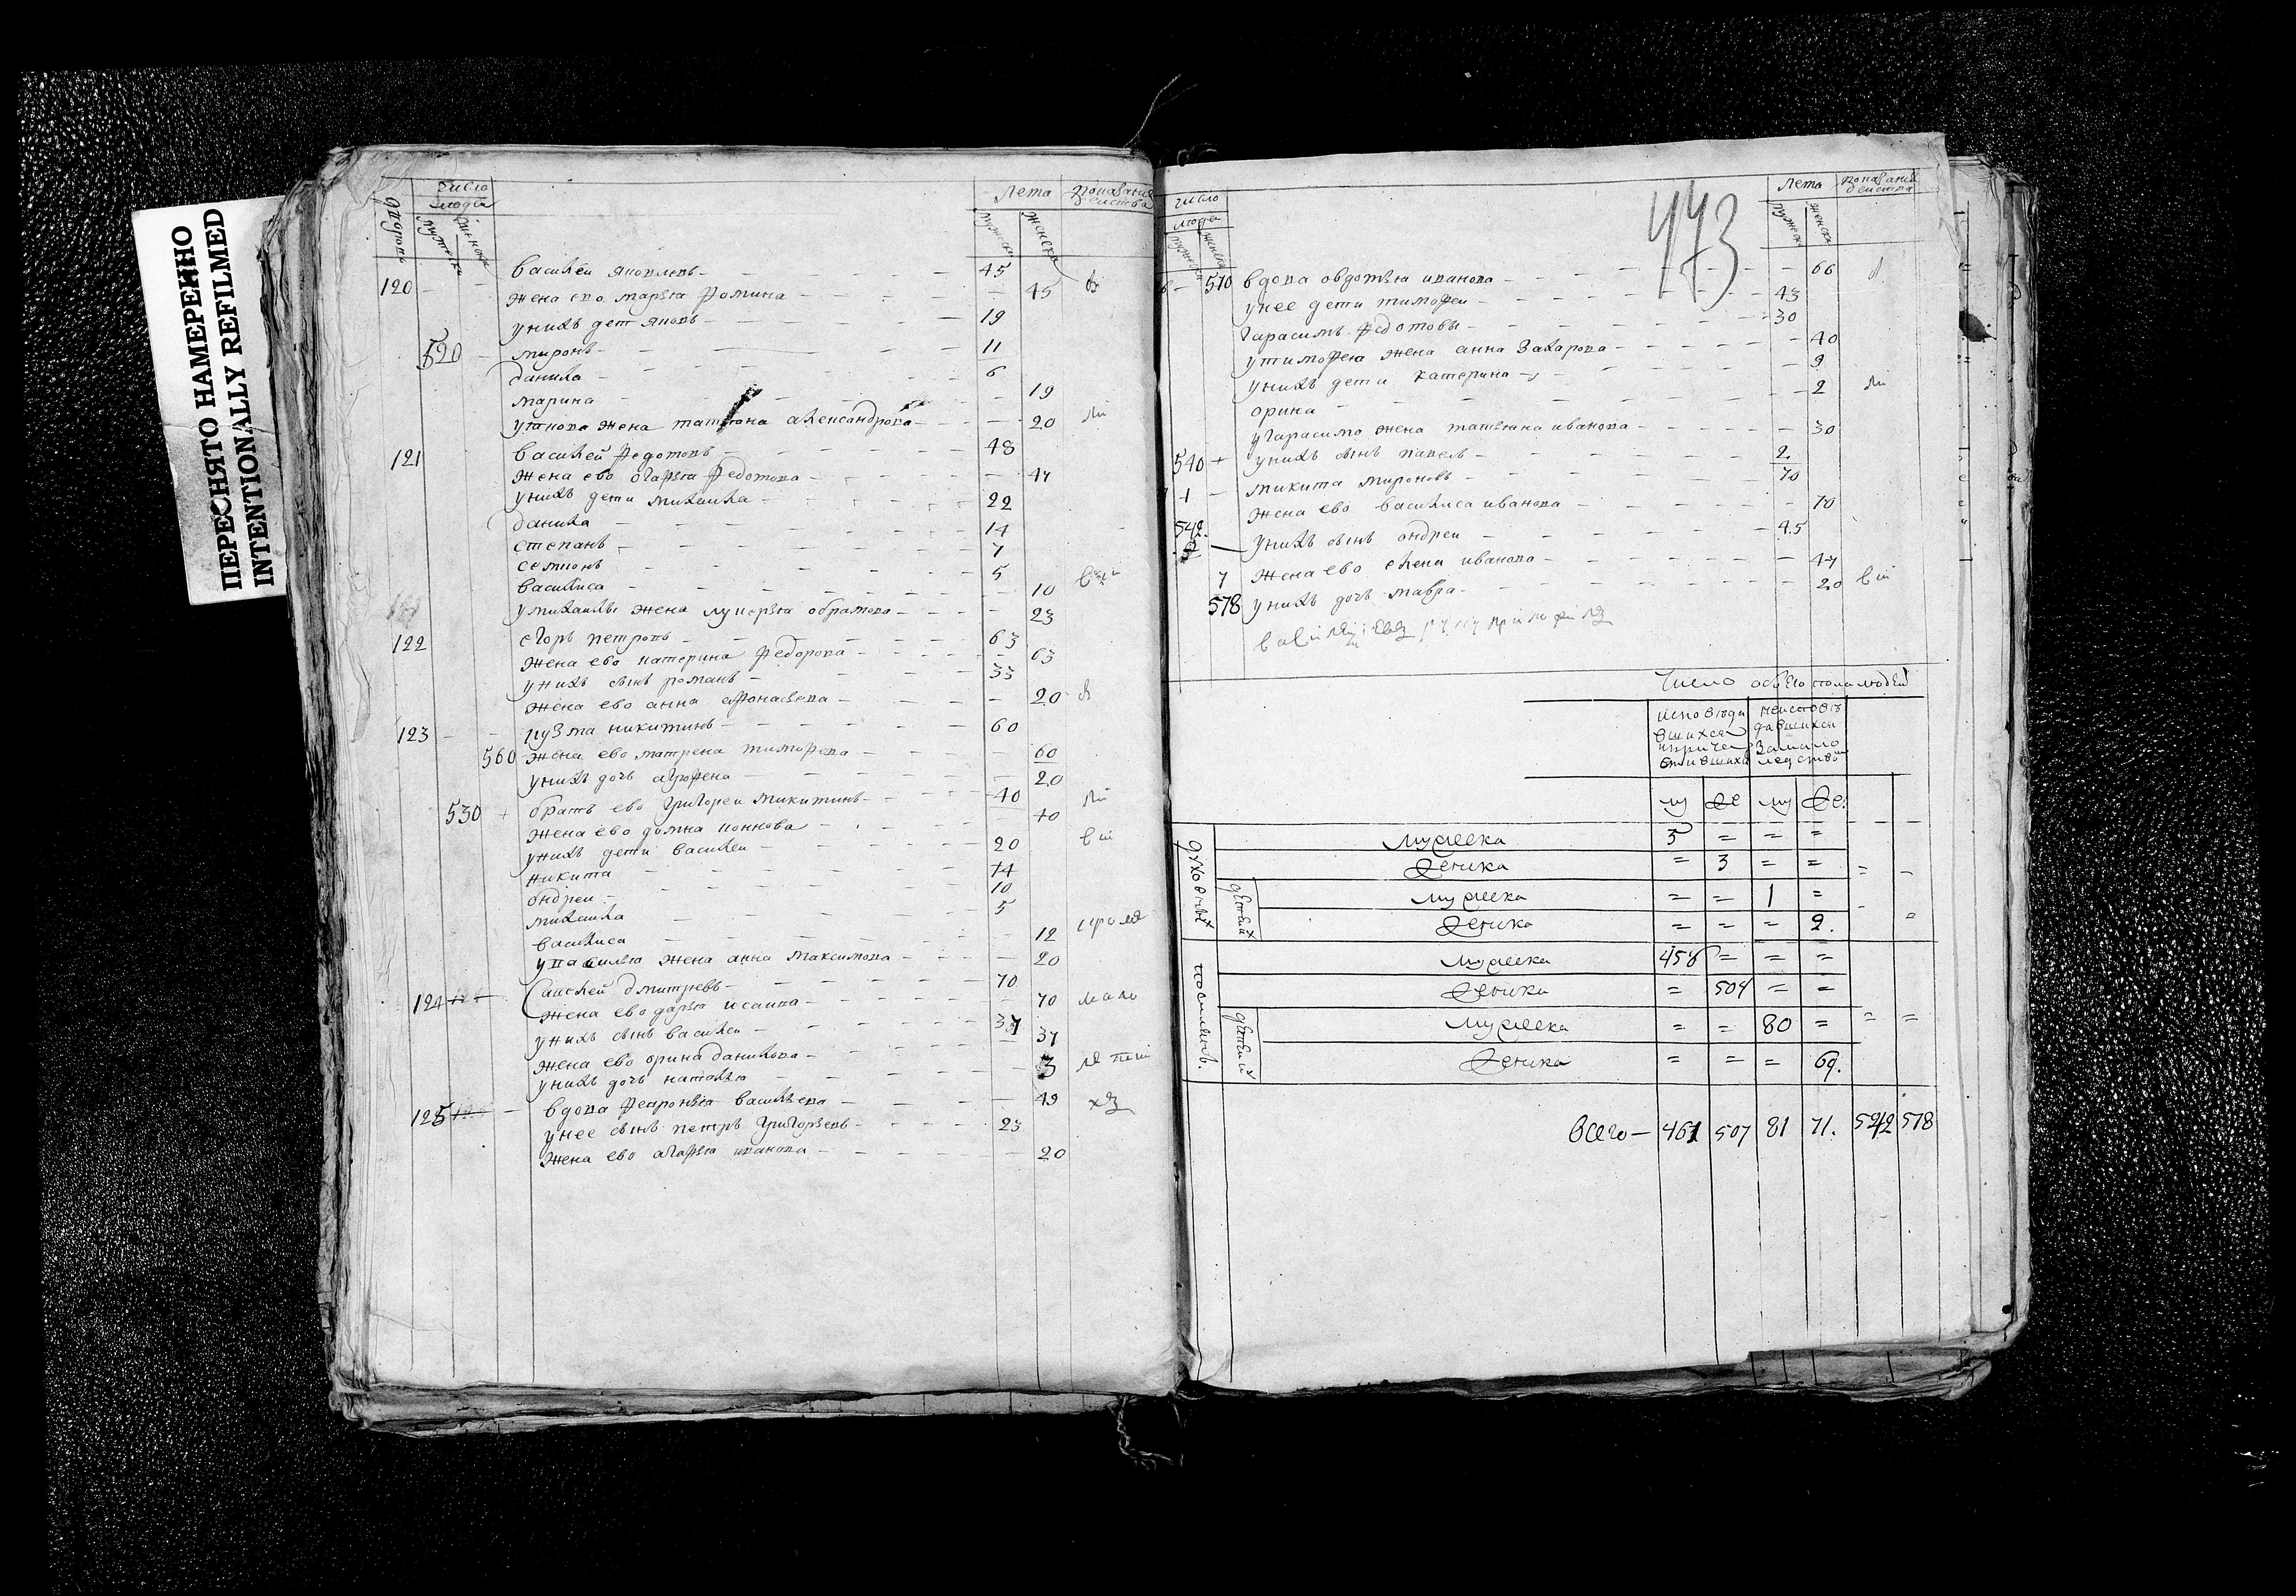 ПЕРЕСНЯТО НАМЕРЕННО
INTENTIONALLY REFILMED
число людей Лета показание
мужеска женска мужеска женска
василей яковлевъ 45
120 жена ево марѣа фомина 45
унихъ дет яковъ 19
520 миронъ 11
данила 6
марина 19
уякова жена татьяна александрова 20
121 василей федотовъ 48
жена ево огафѣа федотова 44
унихъ дети михаила 22
данила 14
степанъ 7
семионъ 5
василиса 10
умихаилы жена лукерѣа обрамова 23
122 егоръ петровъ 63
жена ево катерина федорова 63
унихъ сынъ романъ 33
жена ево анна афонасева 20
123 кузма никитинъ 60
560 жена ево матрена тимофева 60
унихъ дочь агрофена 20
530 + братъ ево григореи микитинъ 40
жена ево домна 40
унихъ дети василеи 20
никита 14
ондреи 10
михаила 5
василиса 12
увасилья жена анна максимова 20
124 дмитревъ 70
жена ево дарѣа исаива 70
унихъ сынъ василеи 37
жена ево орина данилова 37
унихъ дочь наталѣа 3
125 вдова февронѣа василѣева 49
унее сынъ петръ григорѣевъ 23
жена ево агафѣа иванова 20
443
число людей Лета показание
мужеска женска мужеска женска
570 вдова овдотѣа иванова 66
унее дети тимофеи 43
гарасимъ федотовы 30
утимофеа жена анна захарова 40
унихъ дети катерина 9
орина 2
угарасима жена татьяна иванова 30
540 + унихъ сынъ павелъ 2
1 микита мироновъ 70
жена ево василиса иванова 70
542 унихъ сынъ ондреи 45
2
7 жена ево елена иванова 44
578 унихъ дочь мавра 20
Число обоего пола людей
исповѣдавшихся и причастившихся неисповѣдавшихся за малолетствомъ
му же му же
духовныхъ мужеска 5 = = =
женска = 3 = =
детей мужеска = = 1 =
женска = = = 2.
мужеска 456 = = =
женска = 504 = =
детей мужеска = = 80 =
женска = = = 69.
Всего — 461 507 81 71. 542 578